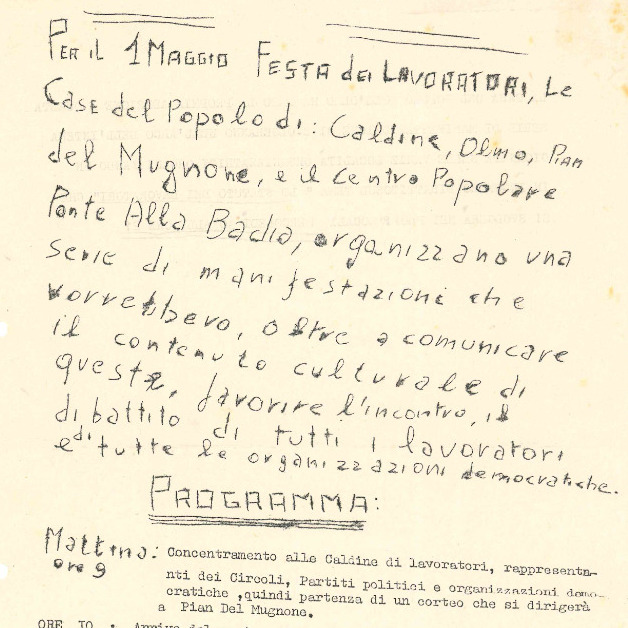 PER il 1 MAGGIO FESTA dei LAVORATORI, Le
CASE del Popolo di: Caldine, Olmo, Pian
del Mugnone, e il Centro Popolare
Ponte Alla Badia, organizzano una
serie di manifestazioni che
vorrebbero, oltre a comunicare
il contenuto culturale di
queste, favorire l'incontro, il
dibattito di tutti i lavoratori
e di tutte le organizzazioni democratiche.
PROGRAMMA:
Mattina: Concentramento alle Caldine di lavoratori, rappresenta-
ore 9 nti dei Circoli, Partiti politici e organizzazioni demo-
cratiche ,quindi partenza di un corteo che si dirigerà
a Pian Del Mugnone.
ORE IO :